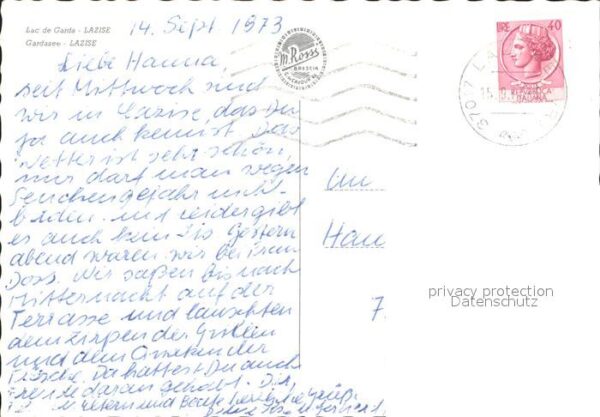 Lac de Garda - LAZISE
Gardasee - LAZISE
14. Sept. 1973
Liebe Hanna,
Seit Mittwoch sind
wir in Lazise, das Du
ja auch kennst. Das
Wetter ist sehr schön,
nur darf man wegen
Seuchengefahr nicht
baden und leider gibt
es auch kein Eis. Gestern
abend waren wir bei Frau
Doss. Wir saßen bis nach
Mitternacht auf der
Terrasse und lauschten
dem Zirpen der Grillen
und dem Quaken der
Frösche. Da hattest Du auch
Freude daran gehabt. Dir,
Eltern und
M. Rossi
BRESCIA
LIRE 40
37017 LA
15.
Im
Han
7.
privacy protection
Datenschutz